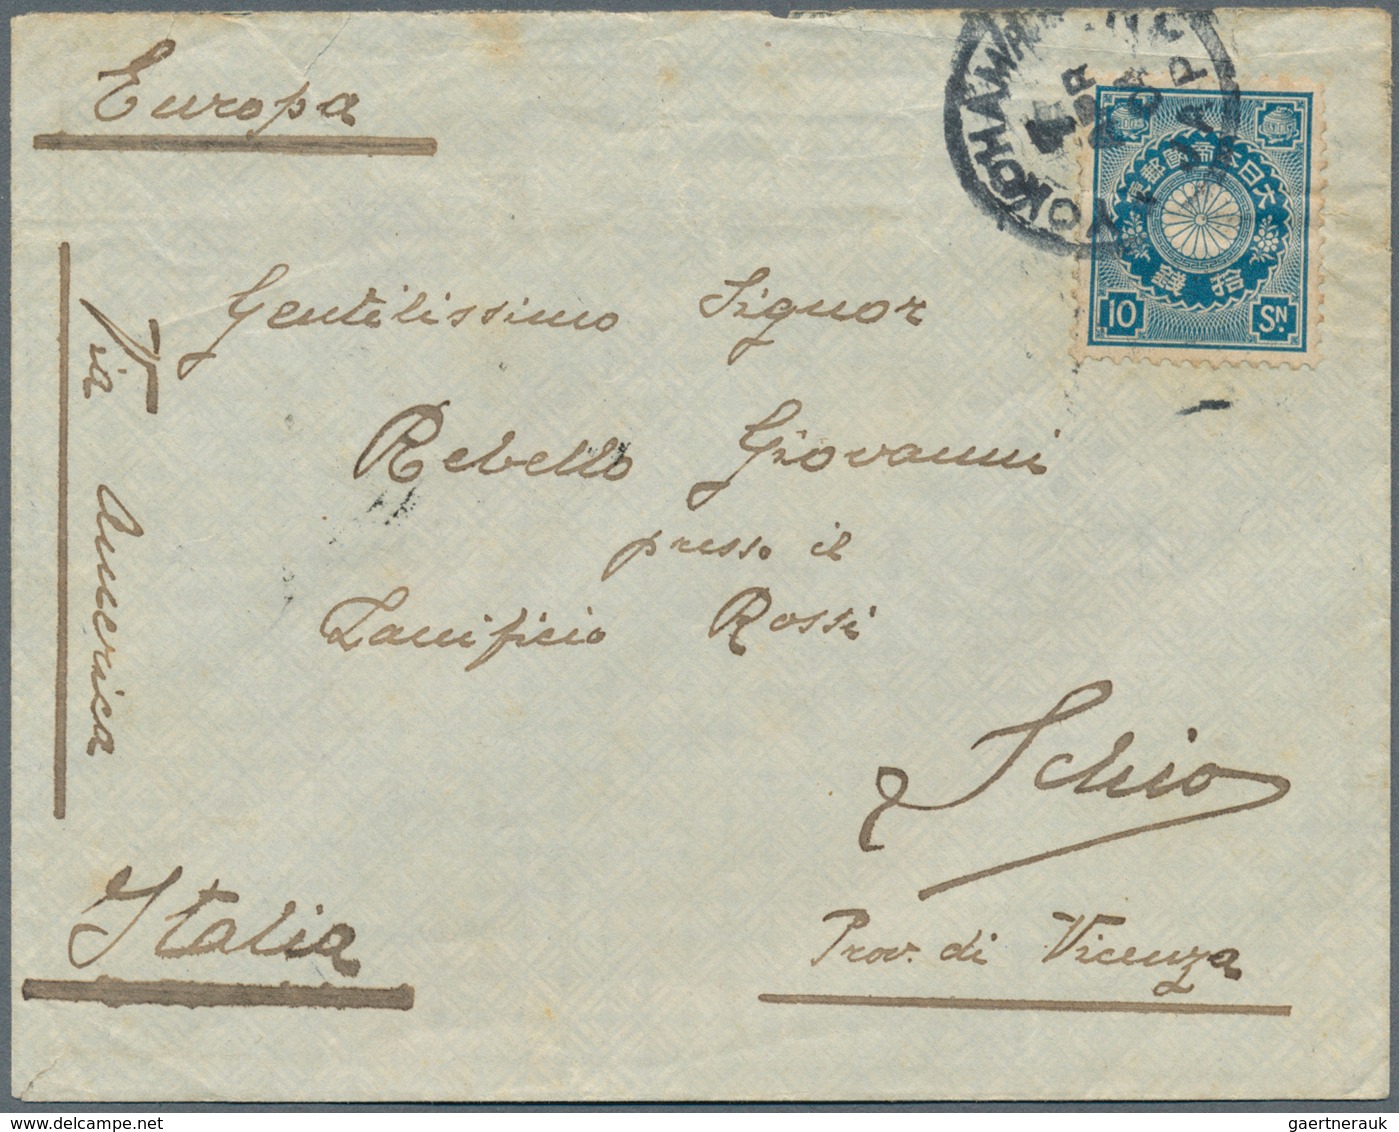 Europa
YOKOHAMA
APR
JAP
大日本帝國郵便
拾銭
10 SN
Via America
Gentilissimo Signor
Rebello Giovanni
presso il
Lanificio Rossi
Schio
Prov. di Vicenza
Italia
gaertnerauk